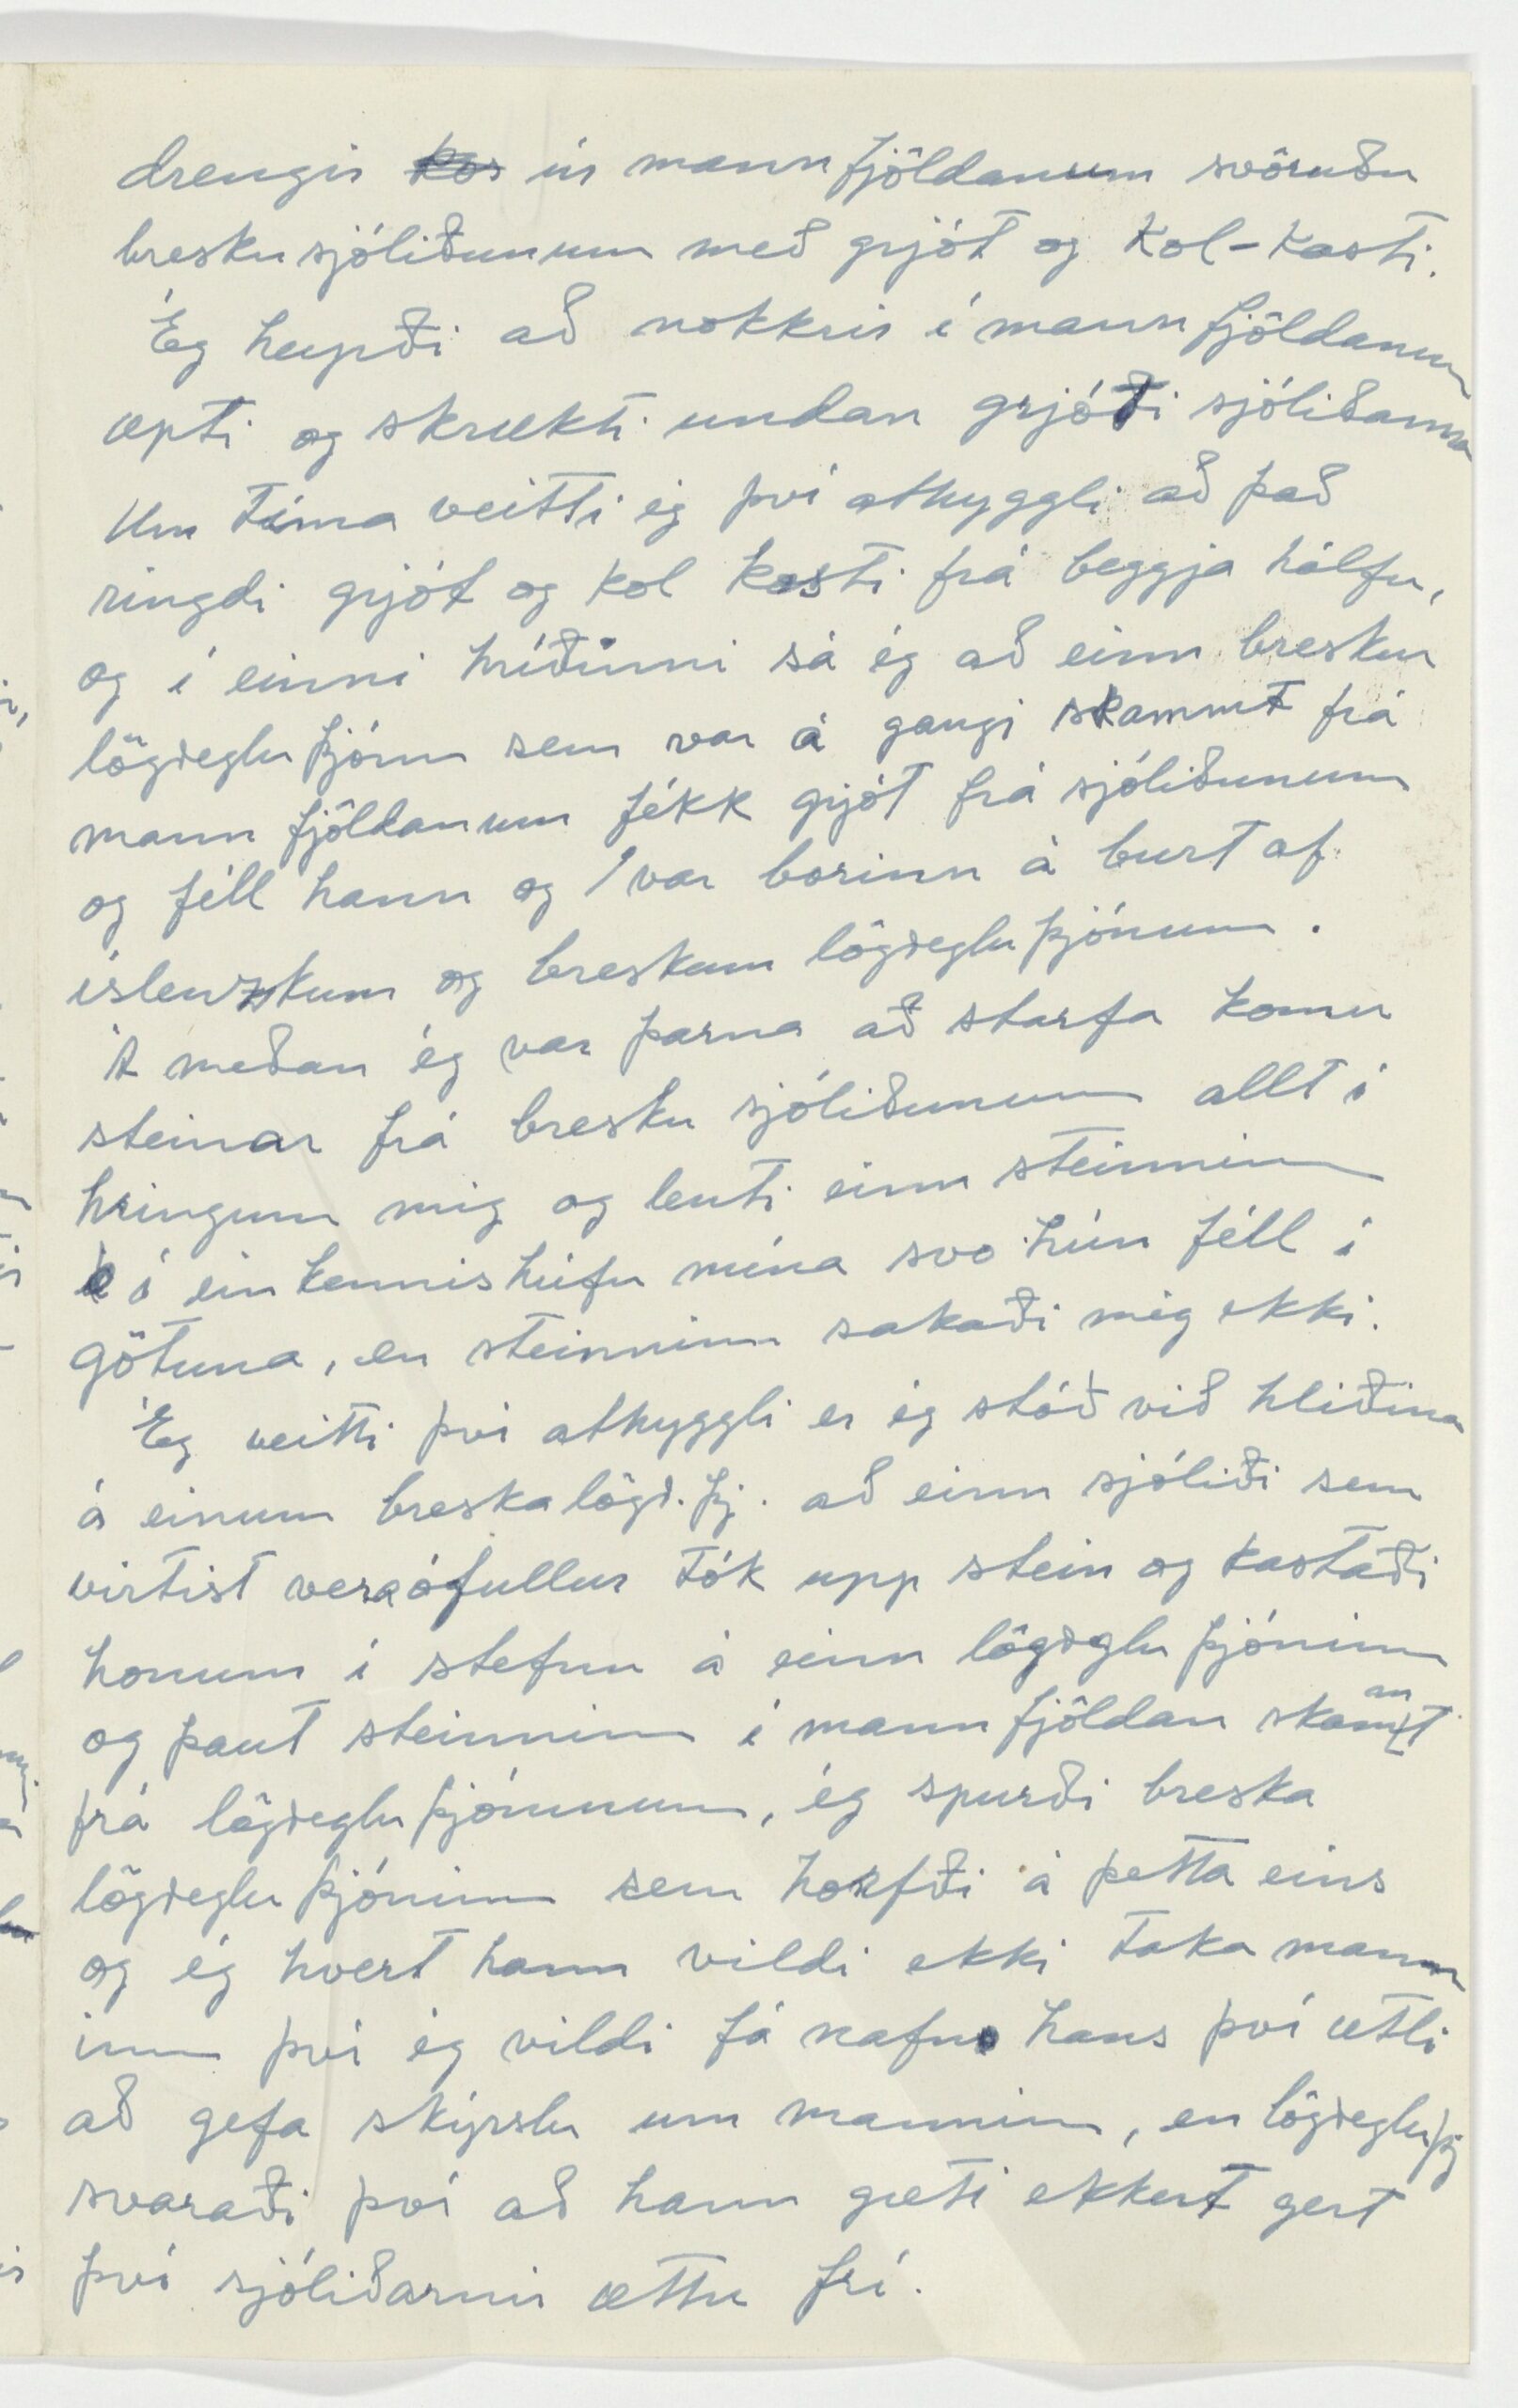 drengir ~~kos~~ úr mannfjöldanum svöruðu
bresku sjóliðunum með grjót og kol-kasti.
Ég heyrði að nokkrir í mannfjöldanum
æpti og skrækti undan grjóti sjóliðanna
Um tíma veitti ég því athyggli að það
ringdi grjót og kol kasti frá beggja hálfu,
og í einni hríðinni sá ég að einn breskur
lögregluþjónn sem var á gangi skammt frá
mannfjöldanum fékk grjót frá sjóliðunum
og féll hann og var borinn á burt af
íslenzkum og breskum lögregluþjónum.
Á meðan ég var þarna að starfa komu
steinar frá bresku sjóliðunum allt í
hringum mig og lenti einn steininn
í einkennishúfu mína svo hún féll í
götuna, en steinninn sakaði mig ekki.
Ég veitti því athyggli er ég stóð við hliðina
á einum breska lögr.þj. að einn sjóliði sem
virtist vera ófullur tók upp stein og kastaði
honum í stefnu á einn lögregluþjóninn
og þaut steinninn í mannfjöldan skammt
frá lögregluþjóninum, ég spurði breska
lögregluþjóninn sem horfði á þetta eins
og ég hvert hann vildi ekki taka mann
inn því ég vildi fá nafn hans því ætli
að gefa skýrslu um manninn, en lögregluþj
svaraði því að hann gæti ekkert gert
því sjóliðarnir ættu frí.